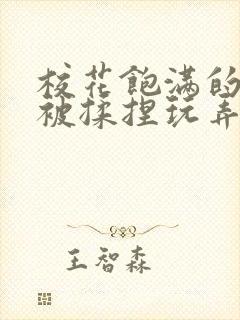 校花飽满的
被揉捏玩弄
王智森